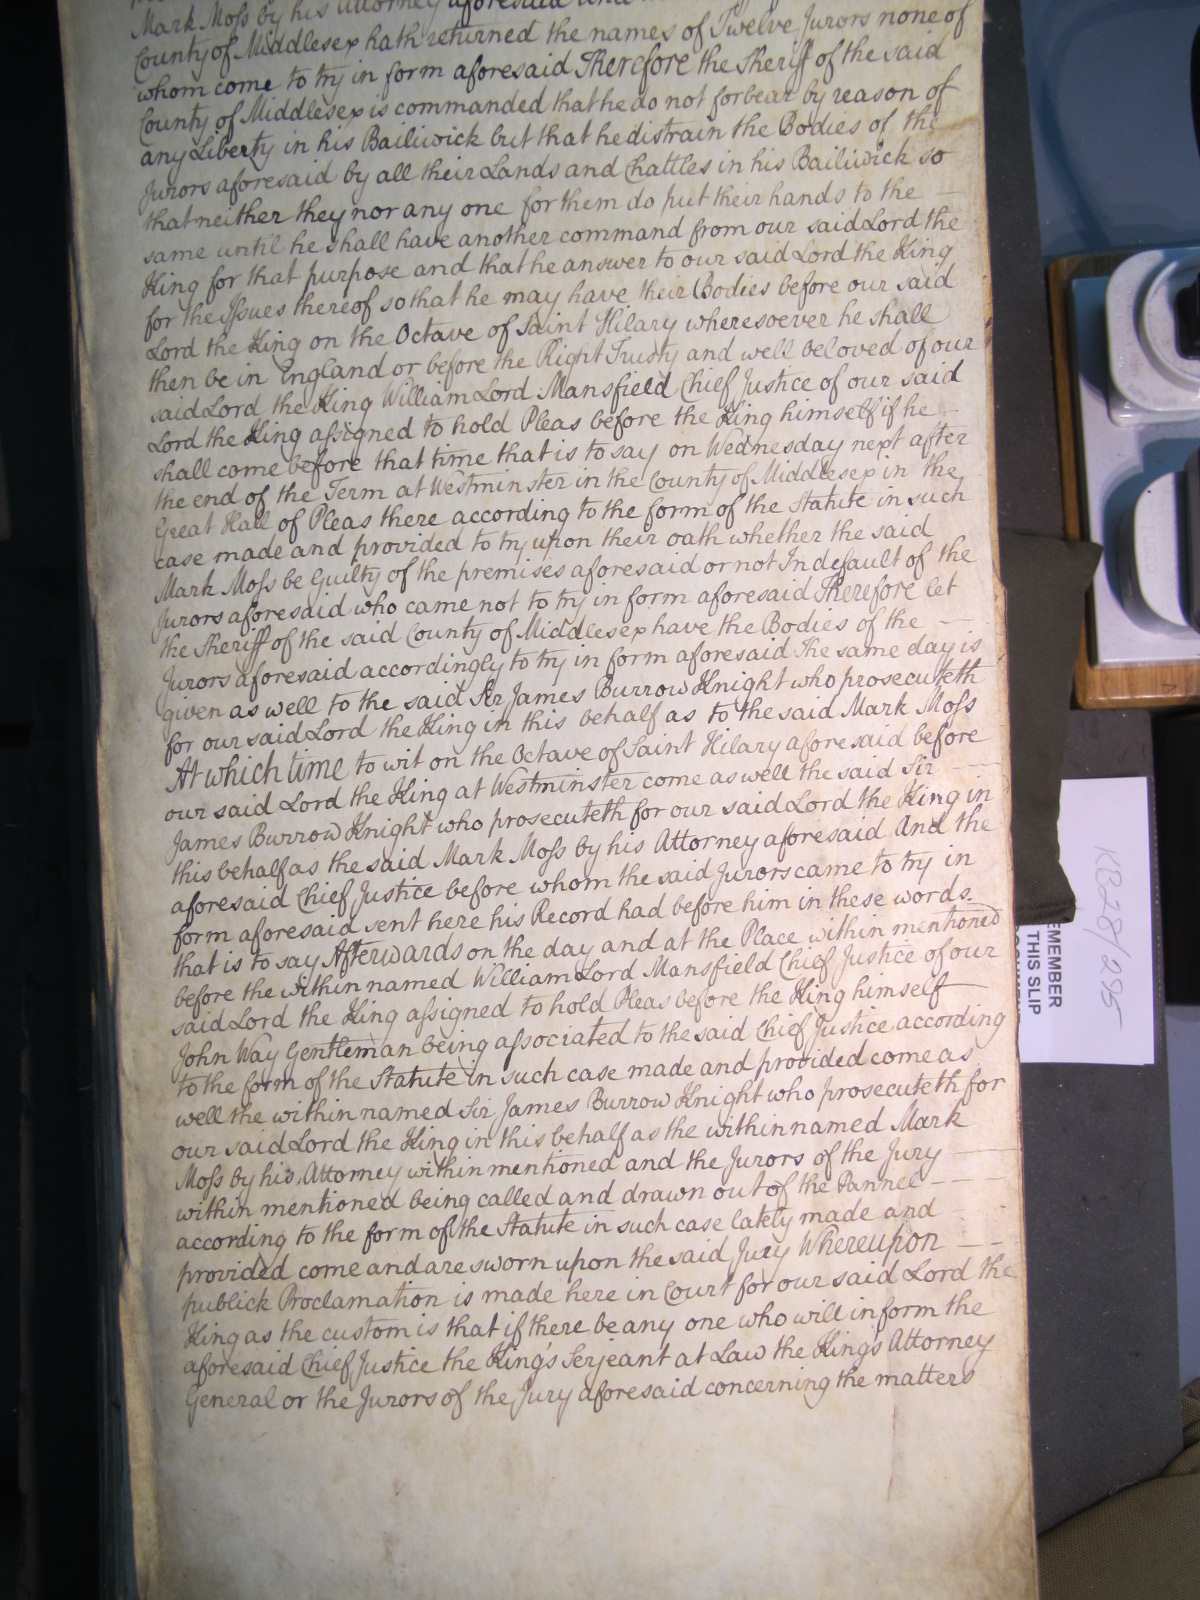 Mark Moss by his Attorney aforesaid and
County of Middlesex hath returned the names of Twelve Jurors none of
whom come to try in form aforesaid Therefore the Sheriff of the said
County of Middlesex is commanded that he do not forbear by reason of
any Liberty in his Bailiwick but that he distrain the Bodies of the
Jurors aforesaid by all their Lands and Chattles in his Bailiwick so
that neither they nor any one for them do put their hands to the
same until he shall have another command from our said Lord the
King for that purpose and that he answer to our said Lord the King
for the Issues thereof so that he may have their Bodies before our said
Lord the King on the Octave of Saint Hilary wheresoever he shall
then be in England or before the Right Trusty and well beloved of our
said Lord the King William Lord Mansfield Chief Justice of our said
Lord the King assigned to hold Pleas before the King himself if he
shall come before that time that is to say on Wednesday next after
the end of the Term at Westminster in the County of Middlesex in the
Great Hall of Pleas there according to the form of the Statute in such
case made and provided to try upon their oath whether the said
Mark Moss be Guilty of the premises aforesaid or not In default of the
Jurors aforesaid who came not to try in form aforesaid Therefore let
the Sheriff of the said County of Middlesex have the Bodies of the
Jurors aforesaid accordingly to try in form aforesaid The same day is
given as well to the said Sir James Burrow Knight who prosecuteth
for our said Lord the King in this behalf as to the said Mark Moss
At which time to wit on the Octave of Saint Hilary aforesaid before
our said Lord the King at Westminster come as well the said Sir
James Burrow Knight who prosecuteth for our said Lord the King in
this behalf as the said Mark Moss by his Attorney aforesaid And the
aforesaid Chief Justice before whom the said Jurors came to try in
form aforesaid sent here his Record had before him in these words
that is to say Afterwards on the day and at the Place within mentioned
before the within named William Lord Mansfield Chief Justice of our
said Lord the King assigned to hold Pleas before the King himself
John Way Gentleman being associated to the said Chief Justice according
to the form of the Statute in such case made and provided come as
well the within named Sir James Burrow Knight who prosecuteth for
our said Lord the King in this behalf as the within named Mark
Moss by his Attorney within mentioned and the Jurors of the Jury
within mentioned being called and drawn out of the Pannel
according to the form of the Statute in such case lately made and
provided come and are sworn upon the said Jury Whereupon
publick Proclamation is made here in Court for our said Lord the
King as the custom is that if there be any one who will inform the
aforesaid Chief Justice the King's Serjeant at Law the King's Attorney
General or the Jurors of the Jury aforesaid concerning the matters
KB28/295
EMEMBER
THIS SLIP